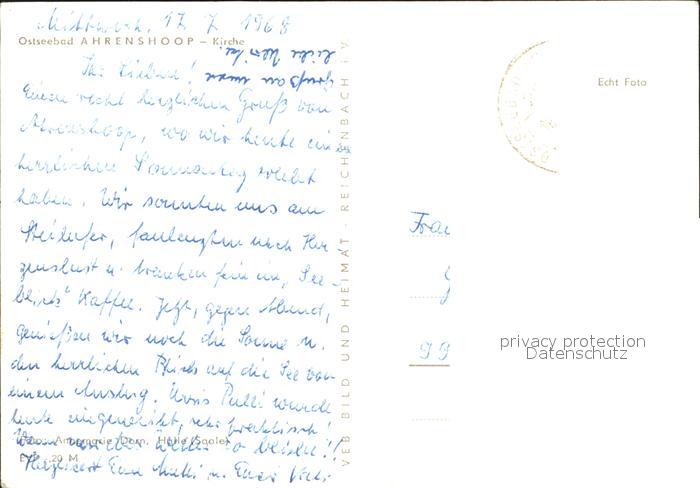 Mittwoch, 17. 7. 1968
Ostseebad AHRENSHOOP – Kirche
Ihr Lieben!
Gruß an
liebe
Einen recht herzlichen Gruß von
Ahrenshoop, wo wir heute einen
herrlichen Sonnentag erlebt
haben. Wir sonnten uns am
Steilufer, faulenzten nach Her-
zenslust u. tranken fein im „See-
blick" Kaffee. Jetzt, gegen Abend,
genießen wir noch die Sonne u.
den herrlichen Blick auf die See von
einem . Pulli wurde
heute eingeweiht, sehr praktisch!
Wenn nur das Wetter so bliebe!!
Foto: Annemarie Dorn, Halle (Saale)
Herzlichst Eure Mutti u. Euer Vati
20 M
VEB BILD UND HEIMAT · REICHENBACH i. V.
Echt Foto
Frau
99
privacy protection
Datenschutz